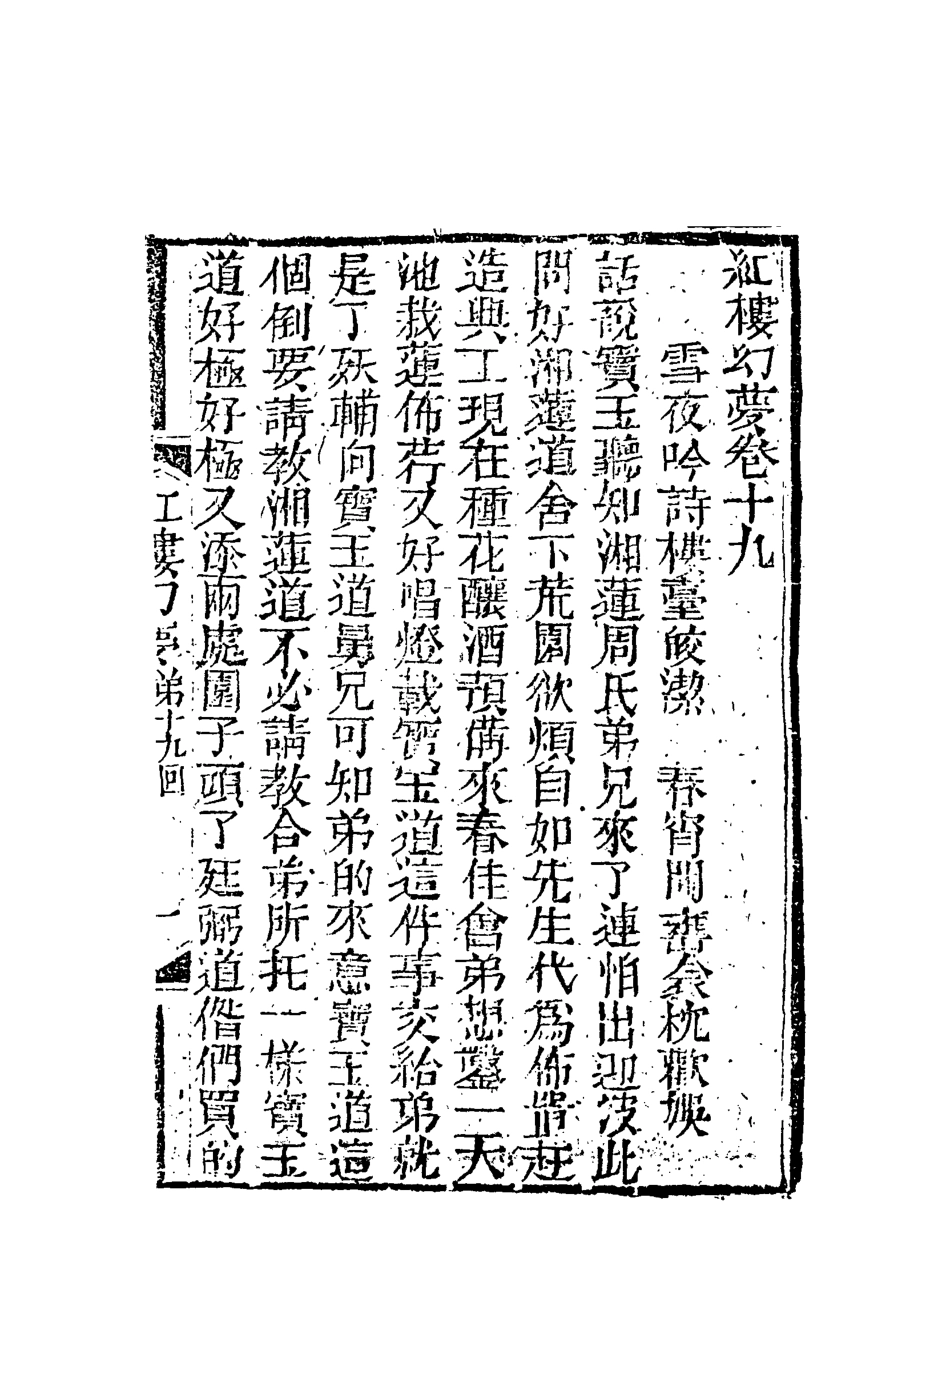 紅樓幻夢卷十九
雪夜吟詩樓臺皎潔　春宵鬧衾枕歡娛
話說寶玉聽知湘蓮周氏弟兄來了連怕出迎彼此
問好湘蓮道舍下荒園欲煩自如先生代爲佈置赶
造興工現在種花釀酒預備來春佳會弟想鑿一大
池栽蓮佈荇又好唱燈戲寶玉道這件事交給弟就
是了廷輔向寶玉道舅兄可知弟的來意寶玉道這
個倒要請教湘蓮道不必請教合弟所托一樣寶玉
道好極好極又添兩處園子頭了廷弼道偺們買的
紅樓幻夢 第十九回 一